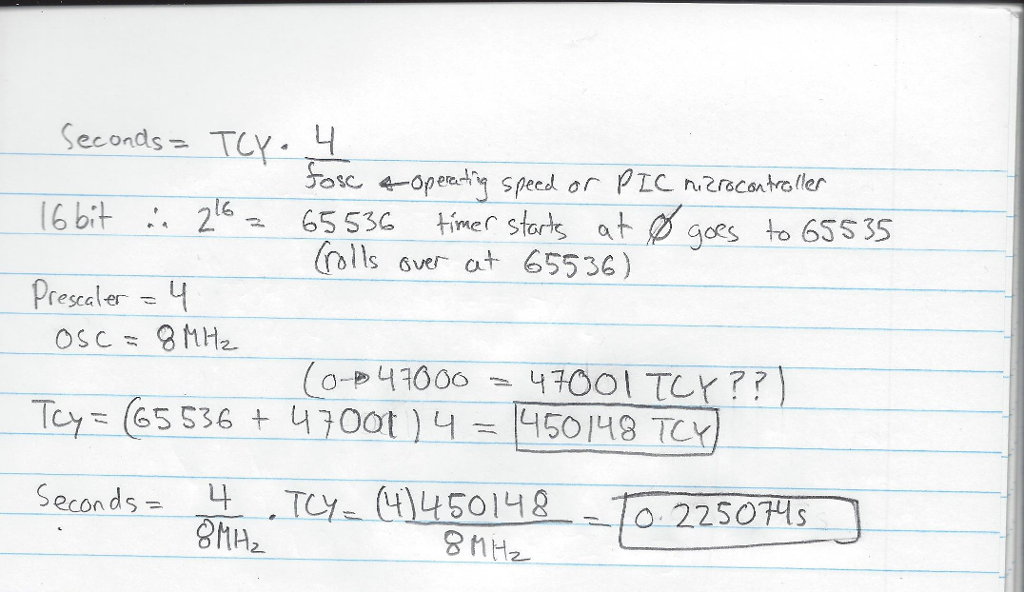 Seconds = TCY · 4/fosc ← operating speed or PIC microcontroller
16 bit ∴ 2^16 = 65536 timer starts at 0 goes to 65535
(rolls over at 65536)
Prescaler = 4
OSC = 8 MHz
(0→47000 = 47001 TCY??)
TCY = (65536 + 47001)4 = 450148 TCY
Seconds = 4/8MHz · TCY = (4)450148/8MHz = 0.225074s